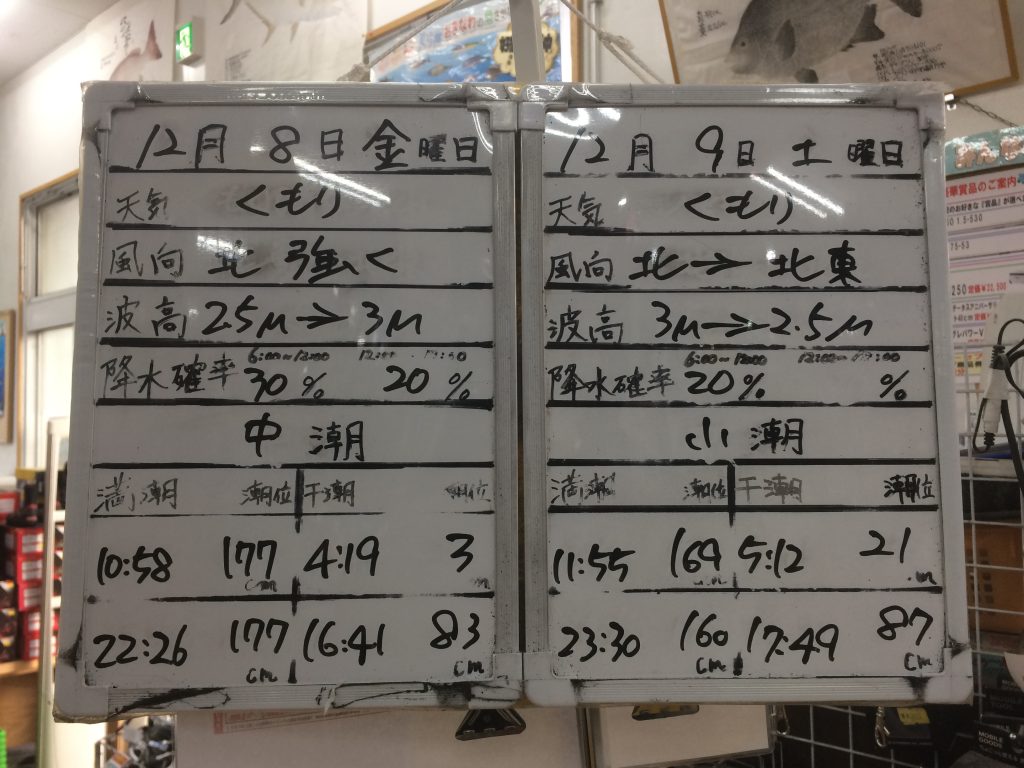 12月 8日 金曜日
天気 くもり
風向 北 強く
波高 2.5M→3M
6:00~12:00
降水確率 30% 20%
中 潮
満潮 潮位 干潮 潮位
10:58 177cm 4:19 3
22:26 177cm 16:41 83cm
12月 9日 土曜日
天気 くもり
風向 北→北東
波高 3M→2.5M
6:00~12:00
降水確率 20% %
小 潮
満潮 潮位 干潮 潮位
11:55 169 5:12 21
23:30 160cm 17:49 87cm
賞品のご案内
MOBILE
GOODS